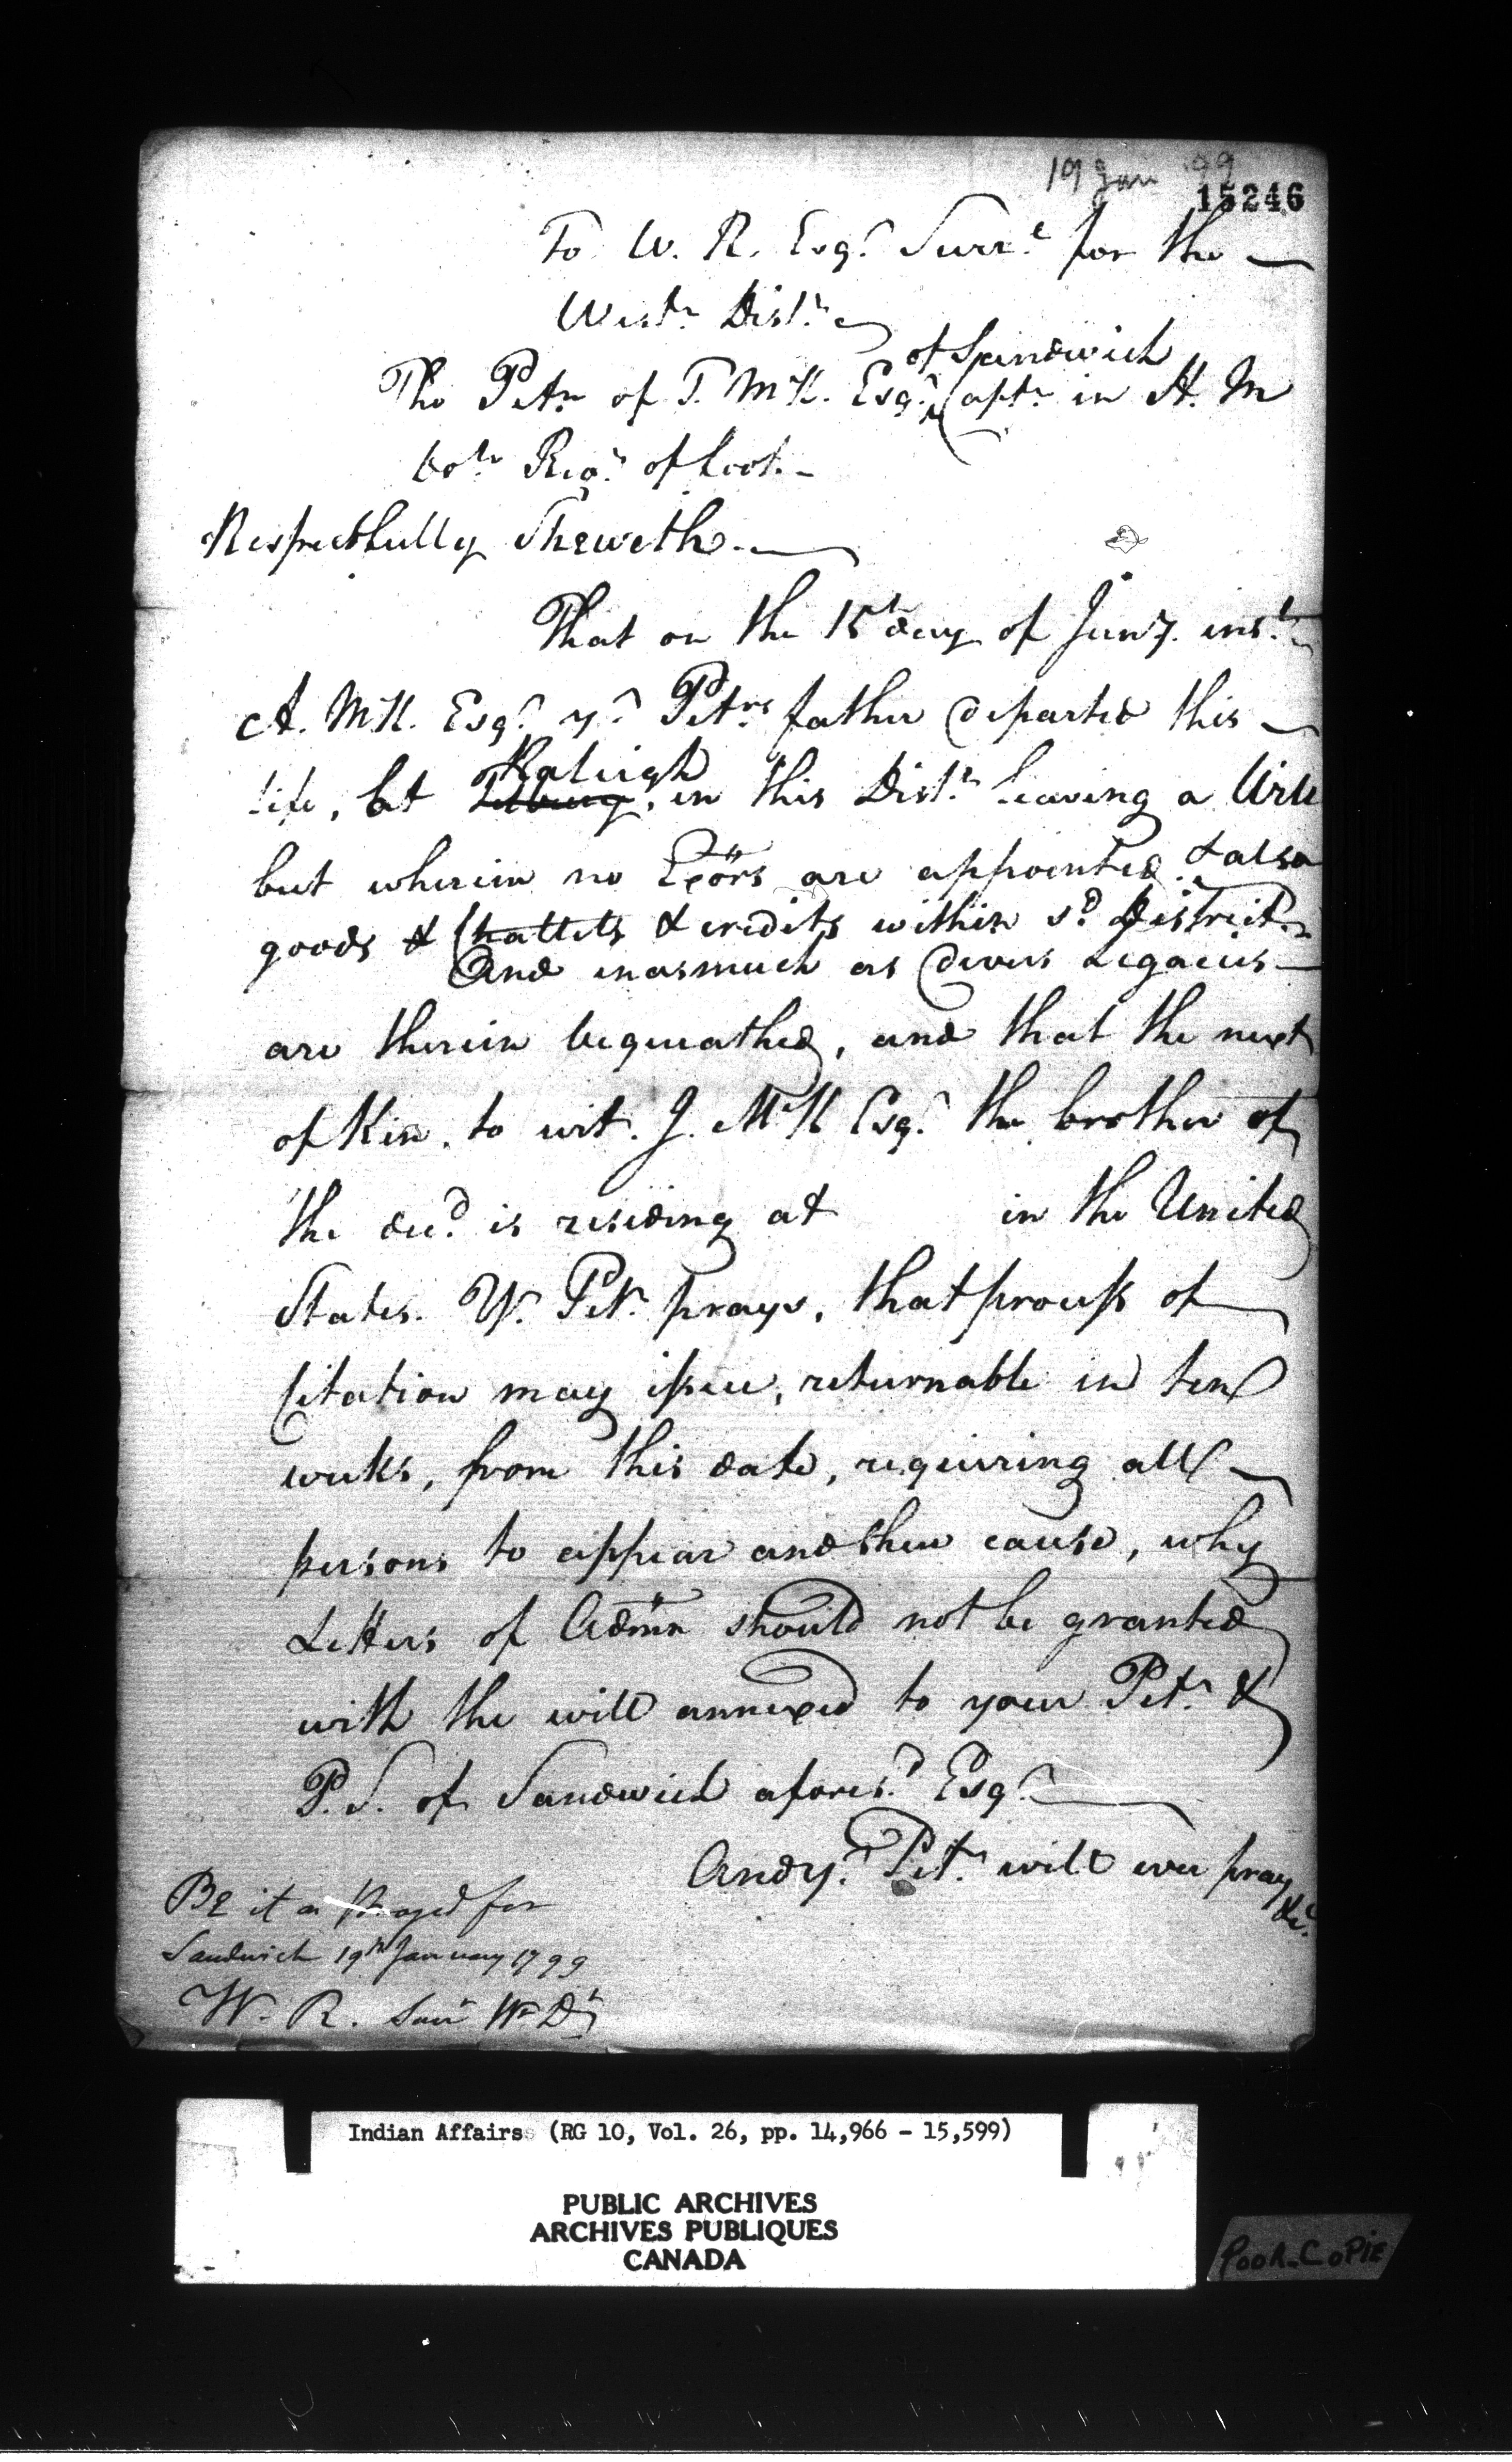 19 Jan '99
15246
To W. R. Esqr. Surre. for the
Westn. Distr.
of Sandwich
The Petn. of T. McK. Esqr. Captn. in H. M
60th Regt. of foot.
Respectfully Sheweth.
That on the 15th day of Jany. inst.
A. McK. Esqr. yr. Petrs. father departed this
Raleigh
life, at Tilbury, in this Distr. leaving a Will
but wherein no Exōrs are appointed. & also
goods & Chattels & credits within sd. District.
And inasmuch as divers Legacies
are therein bequeathed, and that the next
of Kin. to wit. J. McK Esqr. the brother of
the decd. is residing at in the United
States. Yr. Petr. prays, that process of
Citation may issue, returnable in ten
weeks, from this date, requiring all
persons to appear and shew cause, why
Letters of Admn should not be granted
with the will annexed to your Petr. &
P. S. of Sandwich aforesd. Esqr.
And yr. Petr. will ever pray
&c.
BE it as prayed for
Sandwich 19th January 1799
W. R. Surr Wn Dt
Indian Affairs (RG 10, Vol. 26, pp. 14,966 - 15,599)
PUBLIC ARCHIVES
ARCHIVES PUBLIQUES
CANADA
POOR COPIE